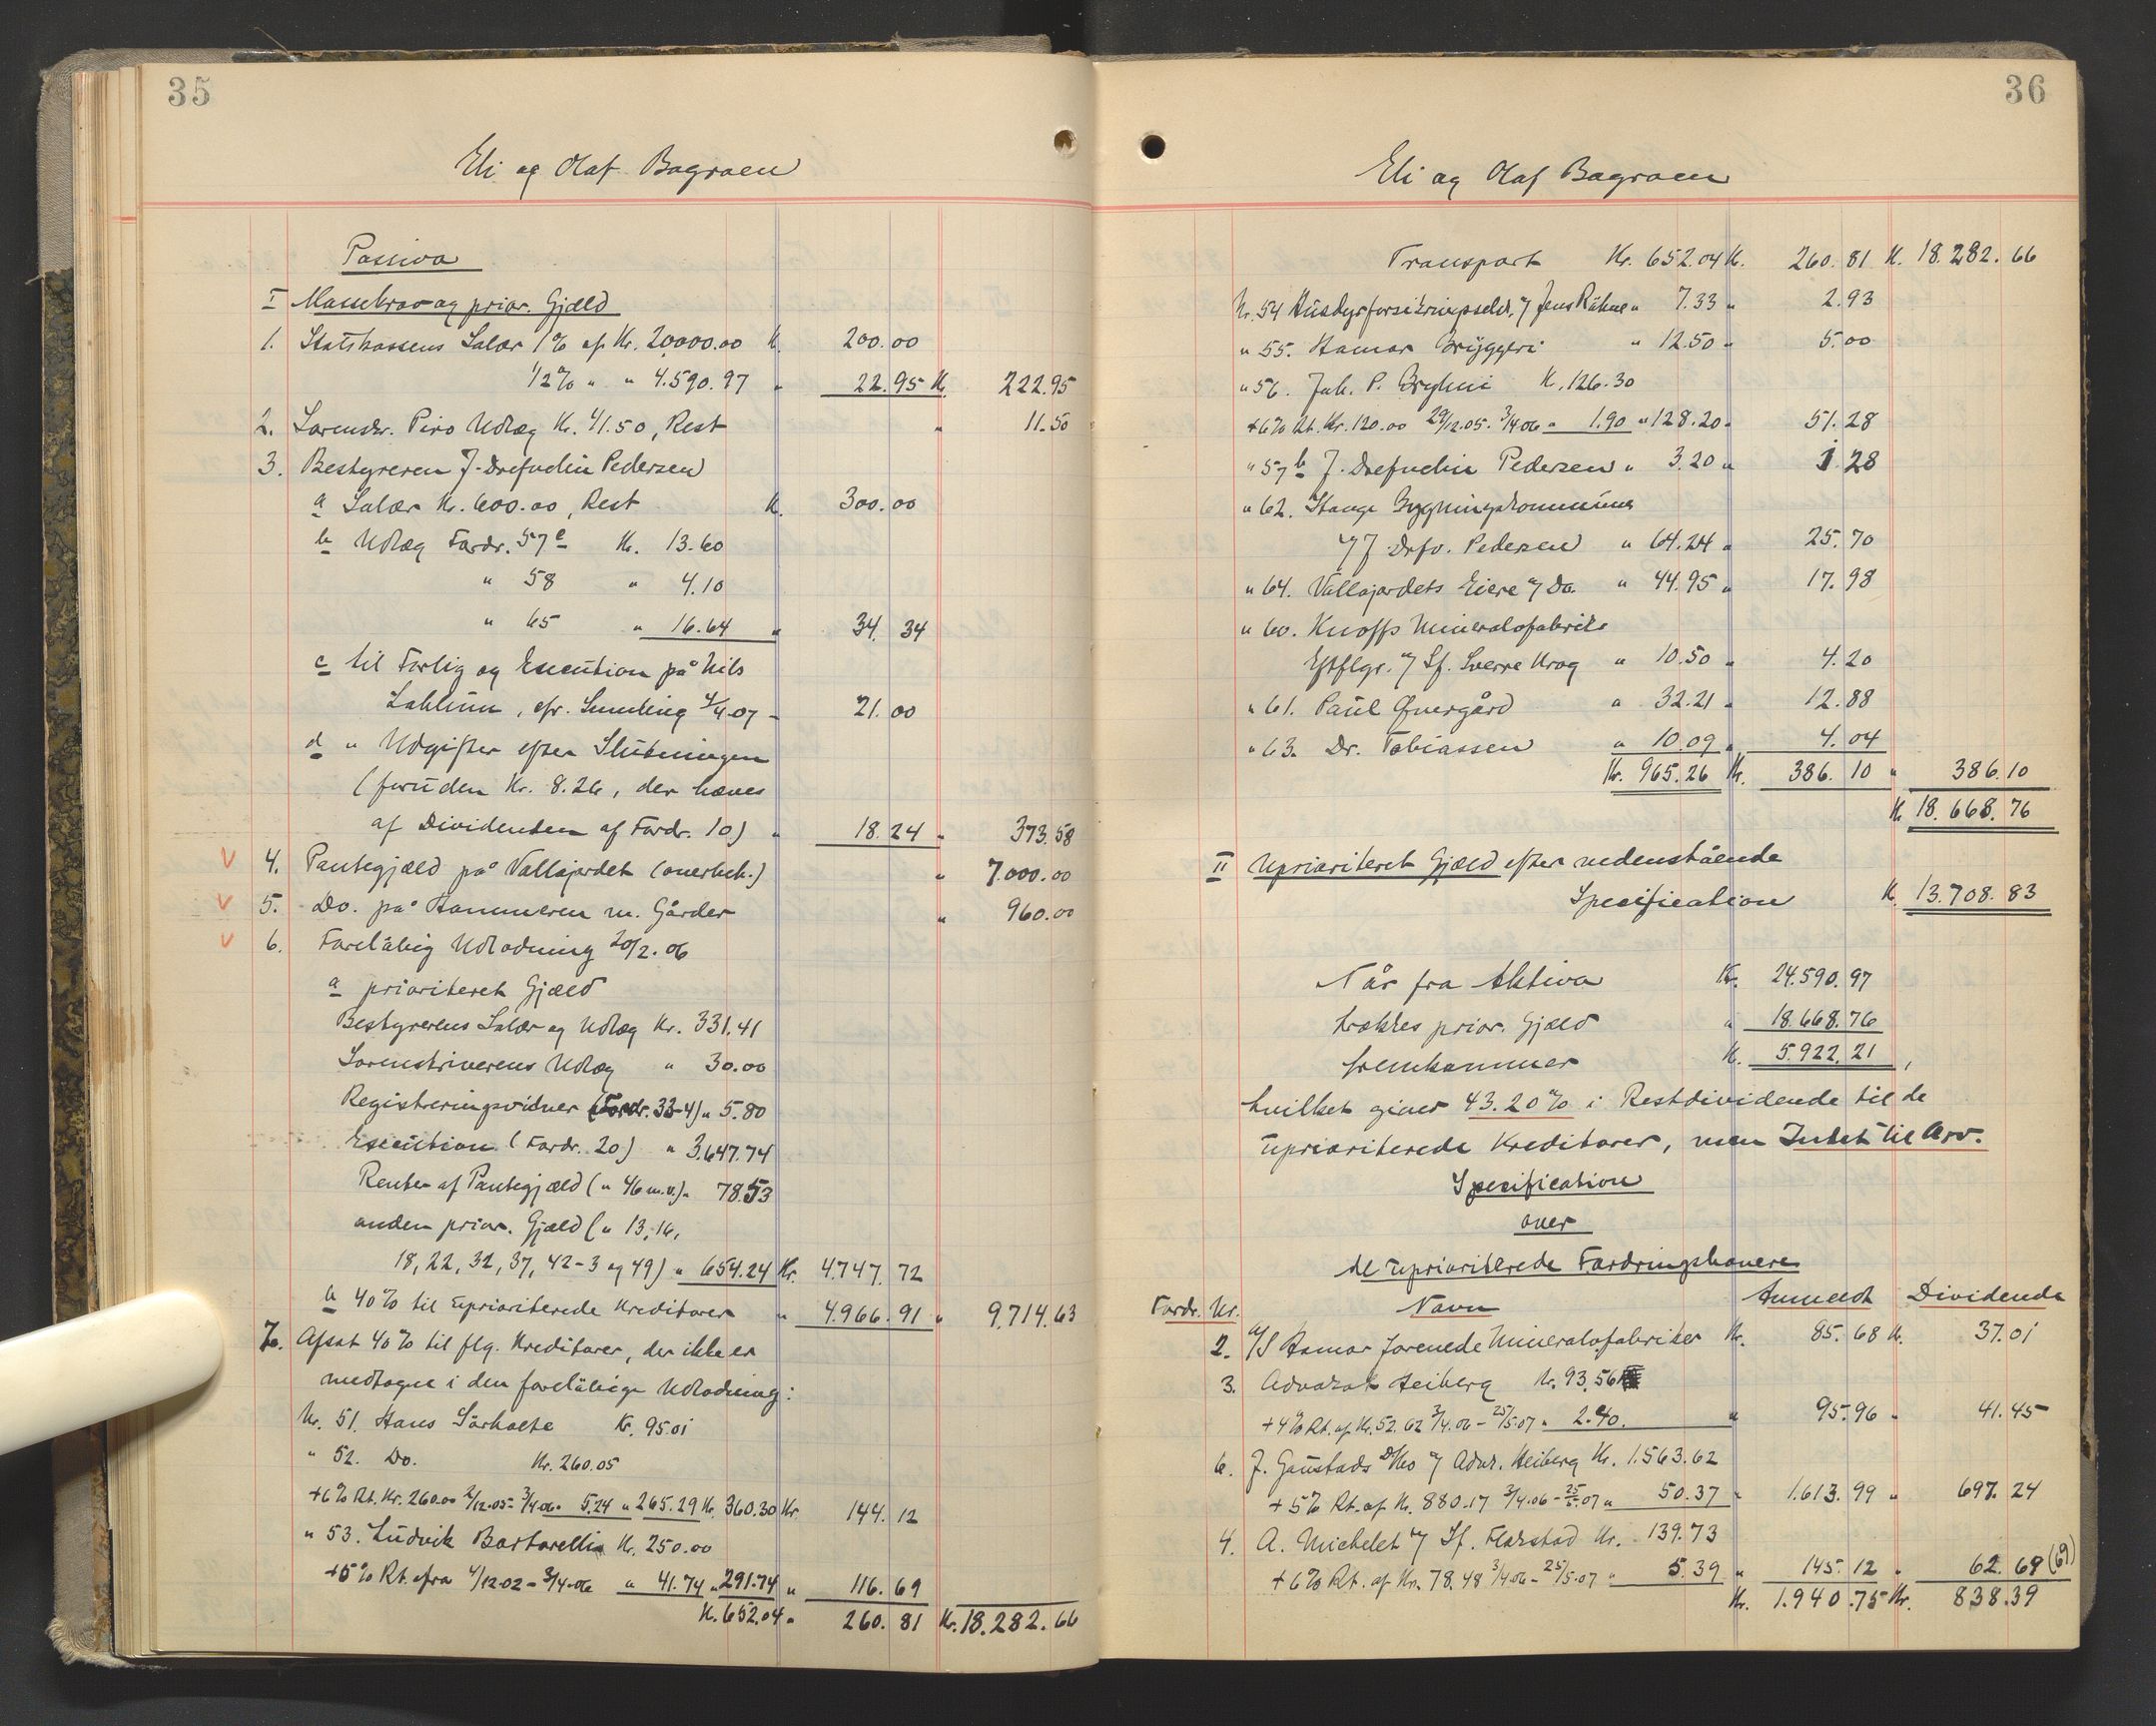 35
Eli og Olaf Bagroen
Passiva
I Massekrav og prior. Gjæld
1. Statskassens Salær 1% af Kr. 20,000.00 K. 200.00
1/2% " " 4.590.97 " 22.95 K. 222.95
2. Sorenskr. Piro Udlæg Kr. 41.50, Rest " 11.50
3. Bestyreren J. Drefvelin Pedersen
a Salær Kr. 600.00, Rest K. 300.00
b Udlæg Fordr. 57c Kr. 13.60
" 58 " 4.10
" 65 " 16.64 " 34.34
c til Forlig og Execution på Nils
Lahlum, efr. Samling 4/4-07 - 21.00
d " Udgifter efter Slutningen
(foruden Kr. 8.26, der hæves
af Dividenden af Fordr. 10) " 18.24 " 373.58
4. Pantegjæld på Vallajordet (overbeh.) " 7.000.00
5. Do. på Hammeren m. Gårder " 960.00
6. Foreløbig Udlodning 20/2.06
a prioriteret Gjæld
Bestyrerens Salær og Udlæg Kr. 331.41
Sorenskriverens Udlæg " 30.00
Registreringsvidner (Fordr. 33-4) " 5.80
Execution (Fordr. 20) " 3.647.74
Renter af Pantegjæld (" 46 m.v.) " 78.53
anden prior. Gjæld (" 13, 16,
18, 22, 32, 37, 42-3 og 49) " 654.24 Kr. 4.747.72
b 40% til uprioriterede Kreditorer " 4.966.91 " 9.714.63
7. Afsat 40% til flg. Kreditorer, der ikke er
medtagne i den foreløbige Udlodning:
Nr. 51. Hans Sørholte Kr. 95.01
" 52. Do. Kr. 260.05
+6% Rt. Kr. 260.00 2/12.05-3/4.06 " 5.24 " 265.29 K. 360.30 Kr. 144.12
" 53. Ludvik Bartarelli Kr. 250.00
+5% Rt. fra 4/12-02 - 3/4-06 " 41.74 " 291.74 " 116.69
K. 652.04 " 260.81 Kr. 18.282.66
36
Eli og Olaf Bagroen
Transport Kr. 652.04 K. 260.81 K. 18.282.66
Nr. 54 Husdyrforsikringsselsk. v/ Jens Råhne " 7.33 " 2.93
" 55. Hamar Bryggeri " 12.50 " 5.00
" 56. Joh. P. Bryhni K. 126.30
+6% Rt. Kr. 120.00 29/12.05-3/4 06 " 1.90 " 128.20 " 51.28
" 57b J. Drefvelin Pedersen " 3.20 " 1.28
" 62. Stange Bygningskommune
v/ J. Drfv. Pedersen " 64.24 " 25.70
" 64. Vallajordets Eiere v/ Do. " 44.95 " 17.98
" 60. Knoffs Mineralvfabriks
Eftflgr. v/ Sf. Sverre Krog " 10.50 " 4.20
" 61. Paul Øvergård " 32.21 " 12.88
" 63. Dr. Tobiassen " 10.09 " 4.04
Kr. 965.26 Kr. 386.10 " 386.10
K. 18.668.76
II Uprioriteret Gjæld efter nedenstående
Specification K. 13.708.83
Når fra Aktiva Kr. 24.590.97
trækkes prior. Gjæld " 18.668.76
fremkommer K. 5.922.21,
hvilket giver 43.20% i Restdividende til de
uprioriterede Kreditorer, men Intet til Arv.
Specification
over
de uprioriterede Fordringshavere
Fordr. Nr. Navn Anmeldt Dividende
2. A/S Hamar forenede Mineralvfabriker Kr. 85.68 K. 37.01
3. Advokat Heiberg Kr. 93.56
+4% Rt. af Kr. 52.62 3/4.06 - 25/5.07 " 2.40. " 95.96 " 41.45
6. J. Gaustads Dbo v/ Adv. Heiberg Kr. 1.563.62
+5% Rt. af K. 880.17 3/4.06 - 25/5.07 " 50.37 " 1.613.99 " 697.24
4. A. Michelet v/ Sf. Florstad Kr. 139.73
+6% Rt. af Kr. 78.48 3/4 06 - 25/5.07 " 5.39 " 145.12 " 62.68 (69)
Kr. 1.940.75 Kr. 838.39